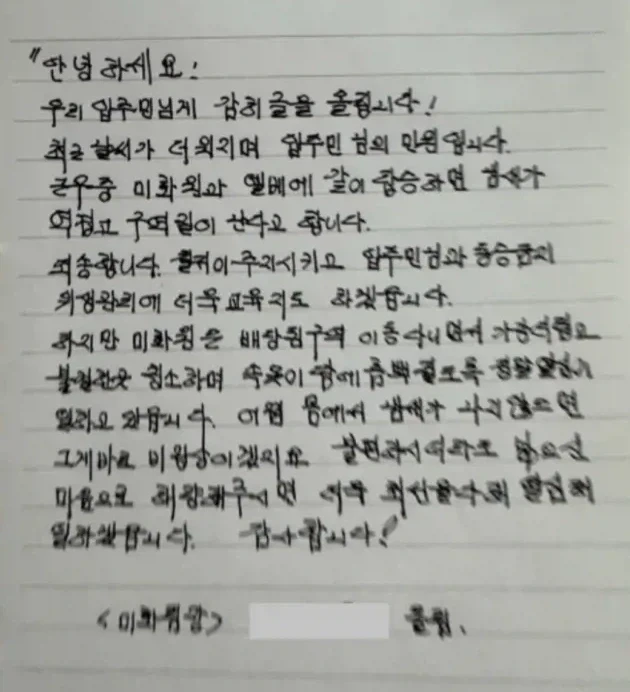 "안녕하세요!
우리 입주민님게 감히 글을 올립니다!
최근 날씨가 더워지며 입주민님의 민원입니다.
근무중 미화원과 엘베에 같이 탑승하면 땀새가
역겹고 구역질이 난다고 합니다.
죄송합니다. 주지시키고 입주민님과 동승금지
의정관리에 더욱 교육지도 하겠습니다.
하지만 미화원은 배당된구역 이동다니면서
청소하며 속옷이 땀에 흠뻑 젖도록 정말 열심히
일하고 있습니다. 어찌 몸에서 땀새가 나지 않으면
그게바로 비정상이겠지요 불편하시더라도 넓으신
마음으로 해주시면 더욱 최선을다해 열심히
일하겠습니다. 감사합니다!
<미화원장> 올림.